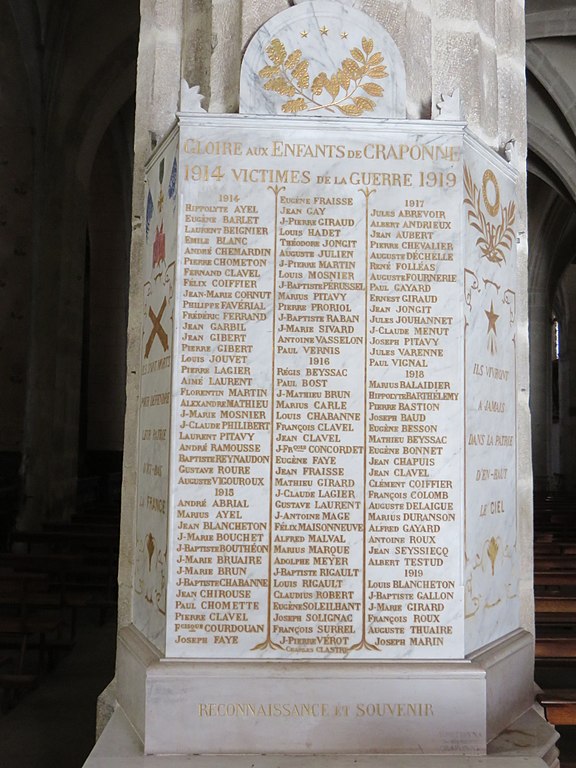 GLOIRE AUX ENFANTS DE CRAPONNE
1914 VICTIMES DE LA GUERRE 1919
1914
HIPPOLYTE AYEL
EUGÈNE BARLET
LAURENT BEIGNIER
EMILE BLANC
ANDRÉ CHEMARDIN
PIERRE CHOMETON
FERNAND CLAVEL
FÉLIX COIFFIER
JEAN-MARIE CORNUT
PHILIPPE FAVÉRIAL
FRÉDÉRIC FERRAND
JEAN GARBIL
JEAN GIBERT
PIERRE GIBERT
LOUIS JOUVET
PIERRE LAGIER
AIMÉ LAURENT
FLORENTIN MARTIN
ALEXANDRE MATHIEU
J-MARIE MOSNIER
J-CLAUDE PHILIBERT
LAURENT PITAVY
ANDRÉ RAMOUSSE
BAPTISTE REYNAUDON
GUSTAVE ROURE
AUGUSTE VIGOUROUX
1915
ANDRÉ ABRIAL
MARIUS AYEL
JEAN BLANCHETON
J-MARIE BOUCHET
J-BAPTISTE BOUTHÉON
J-MARIE BRUAIRE
J-MARIE BRUN
J-BAPTISTE CHABANNE
JEAN CHIROUSE
PAUL CHOMETTE
PIERRE CLAVEL
FÇOISQUE COURDOUAN
JOSEPH FAYE
EUGÈNE FRAISSE
JEAN GAY
J-PIERRE GIRAUD
LOUIS HADET
THÉODORE JONGIT
AUGUSTE JULIEN
J-PIERRE MARTIN
LOUIS MOSNIER
J-BAPTISTE PÉRUSSEL
MARIUS PITAVY
PIERRE PRORIOL
J-BAPTISTE RABAN
J-MARIE SIVARD
ANTOINE VASSELON
PAUL VERNIS
1916
RÉGIS BEYSSAC
PAUL BOST
J-MATHIEU BRUN
MARIUS CARLE
LOUIS CHABANNE
FRANÇOIS CLAVEL
JEAN CLAVEL
J-FRÇOIS CONCORDET
EUGÈNE FAYE
JEAN FRAISSE
MATHIEU GIRARD
J-CLAUDE LAGIER
GUSTAVE LAURENT
J-ANTOINE MAGE
FÉLIX MAISONNEUVE
ALFRED MALVAL
MARIUS MARQUE
ADOLPHE MEYER
J-BAPTISTE RIGAULT
LOUIS RIGAULT
CLAUDIUS ROBERT
EUGÈNE SOLEILHANT
JOSEPH SOLIGNAC
FRANÇOIS SURREL
J-PIERRE VÉROT
CHARLES CLASTRE
1917
JULES ABREVOIR
ALBERT ANDRIEUX
JEAN AUBERT
PIERRE CHEVALIER
AUGUSTE DÉCHELLE
RENÉ FOLLÉAS
AUGUSTE FOURNERIE
PAUL GAYARD
ERNEST GIRAUD
JEAN JONGIT
JULES JOUHANNET
J-CLAUDE MENUT
JOSEPH PITAVY
JULES VARENNE
PAUL VIGNAL
1918
MARIUS BALAIDIER
HIPPOLYTE BARTHÉLEMY
PIERRE BASTION
JOSEPH BAUD
EUGÈNE BESSON
MATHIEU BEYSSAC
EUGÈNE BONNET
JEAN CHAPUIS
JEAN CLAVEL
CLÉMENT COIFFIER
FRANÇOIS COLOMB
AUGUSTE DELAIGUE
MARIUS DURANSON
ALFRED GAYARD
ANTOINE ROUX
JEAN SEYSSIECQ
ALBERT TESTUD
1919
LOUIS BLANCHETON
J-BAPTISTE GALLON
J-MARIE GIRARD
FRANÇOIS ROUX
AUGUSTE THUAIRE
JOSEPH MARIN
ILS SONT MORTS
POUR DÉFENDRE
LEUR PATRIE
D'ICI-BAS
LA FRANCE
ILS VIVRONT
A JAMAIS
DANS LA PATRIE
D'EN-HAUT
LE CIEL
RECONNAISSANCE ET SOUVENIR